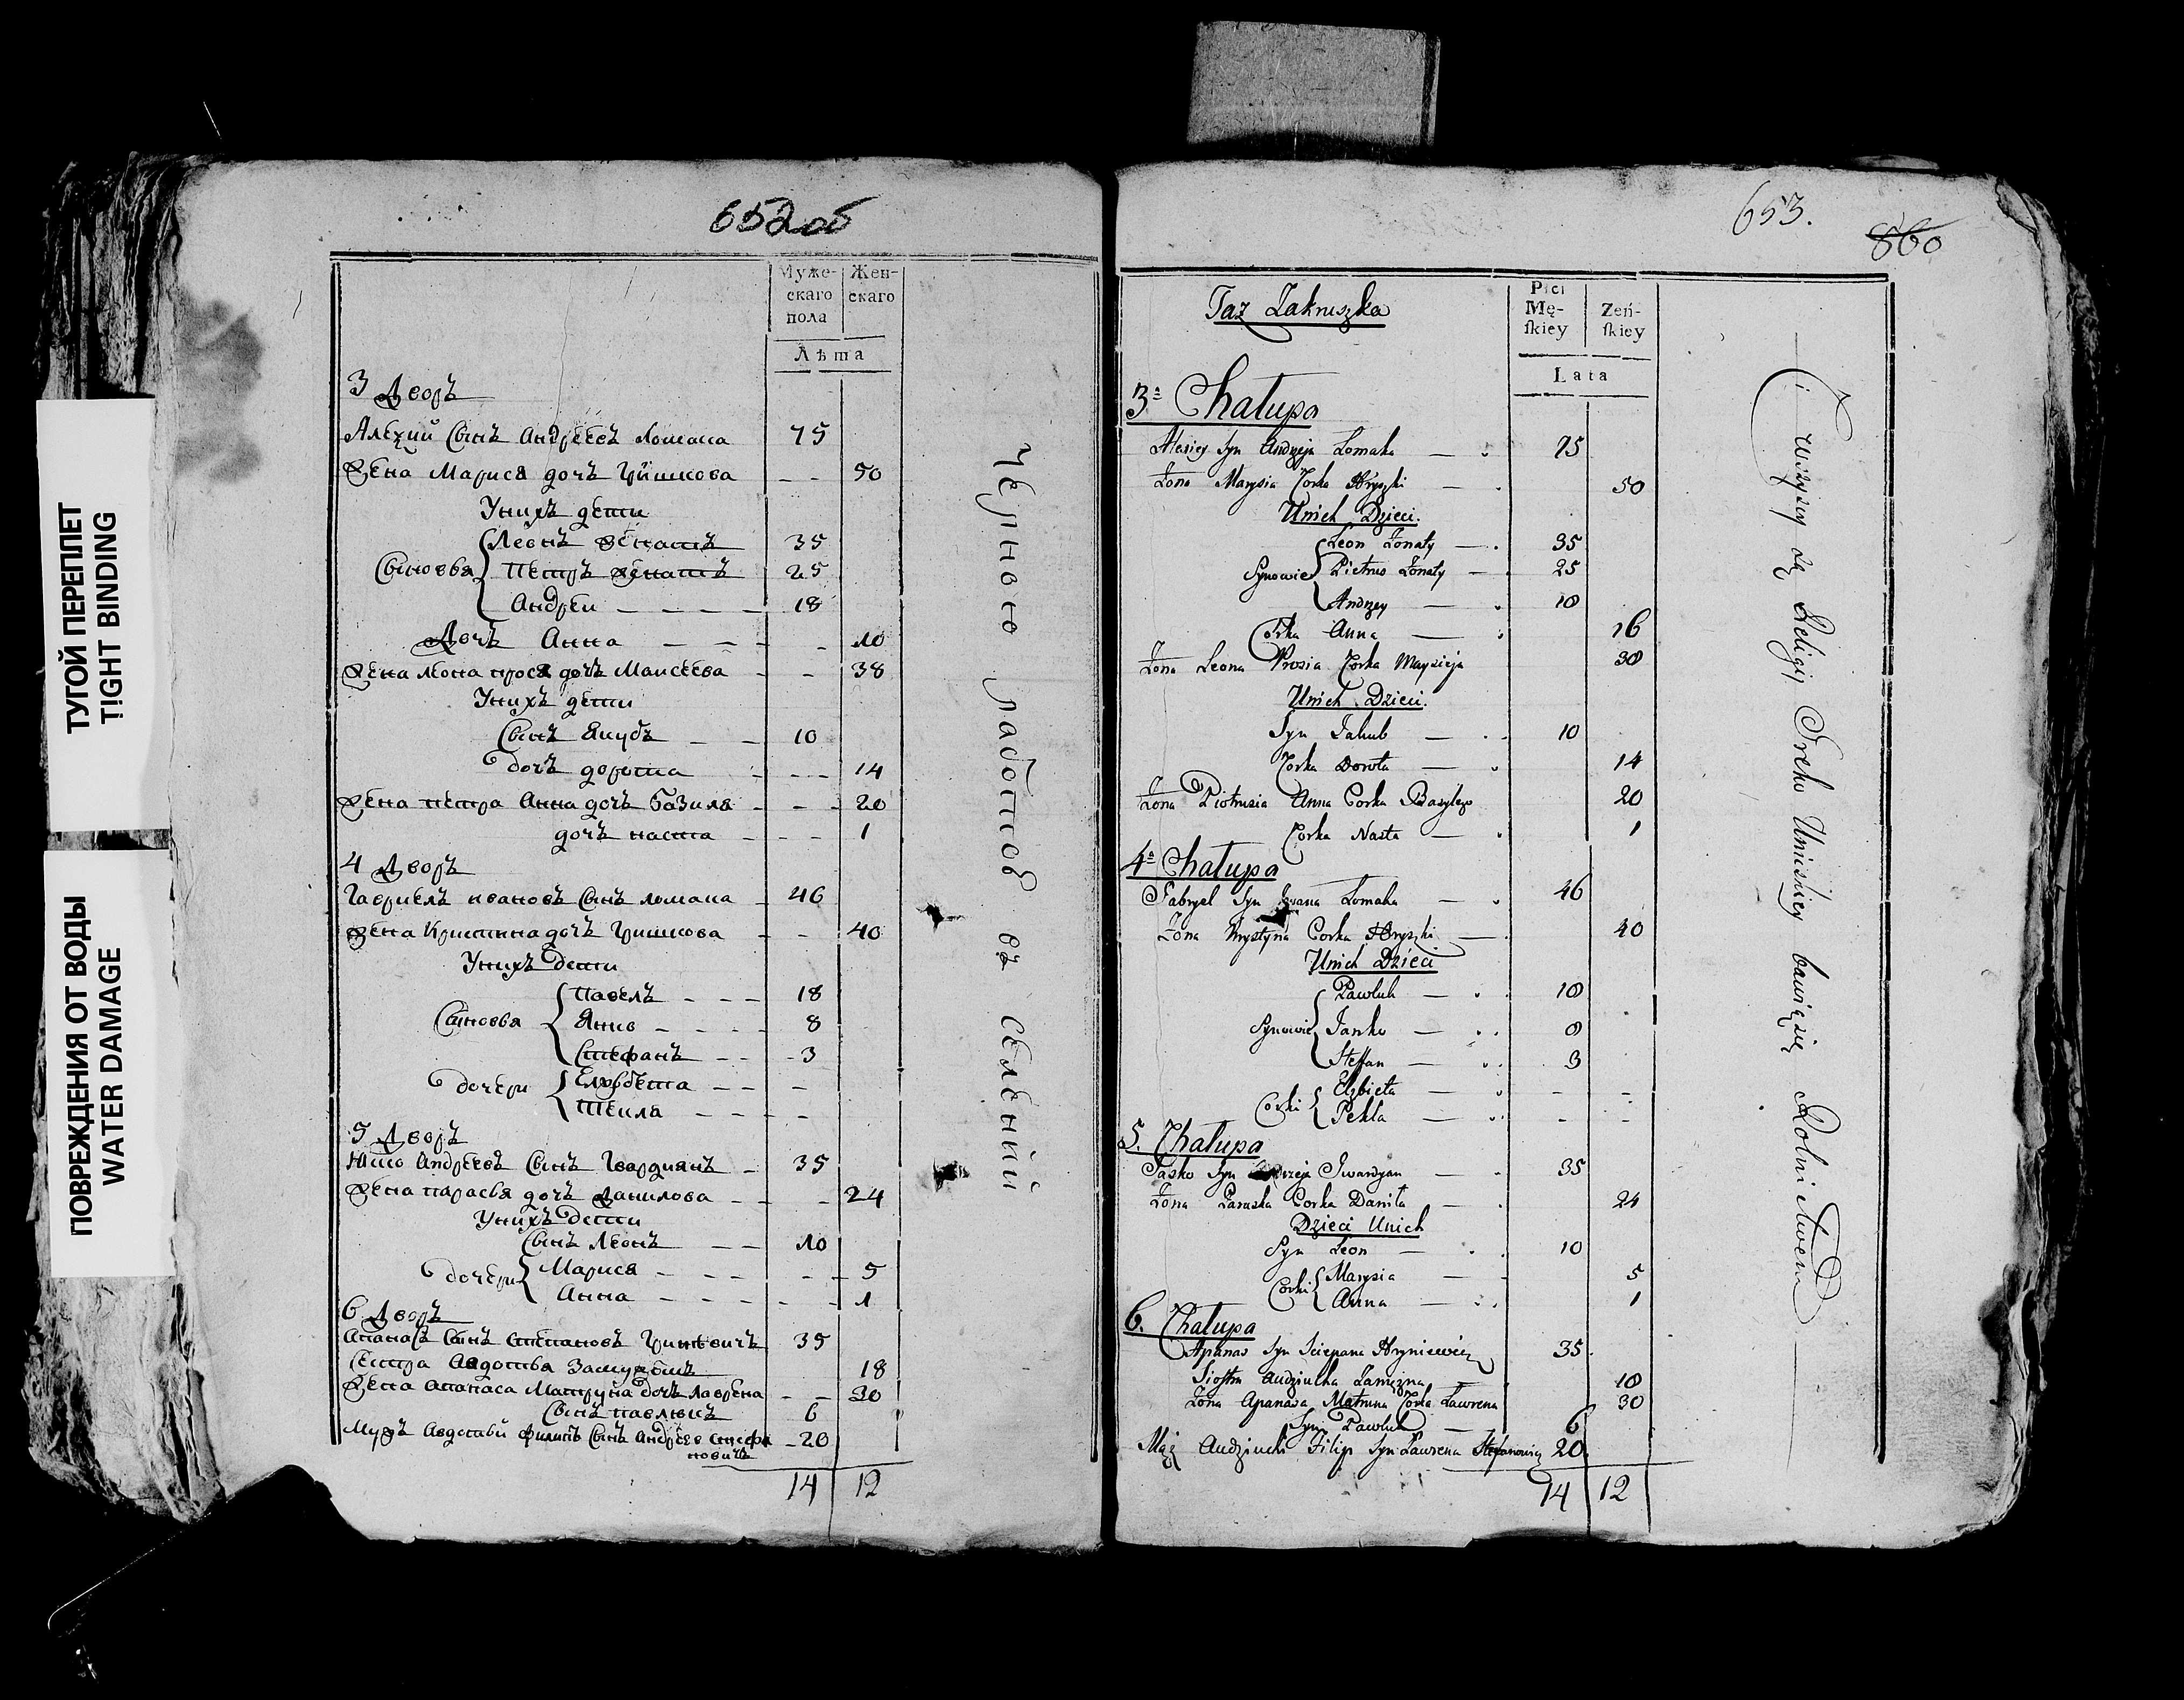 ТУГОЙ ПЕРЕПЛЕТ
TIGHT BINDING
ПОВРЕЖДЕНИЯ ОТ ВОДЫ
WATER DAMAGE
652об
Муже-
скаго
пола
Жен-
скаго
Лѣта
3 Дворъ
Алѣкций Сынъ Андрѣевъ Ломака 75
Жена Марися дочъ Гришкова — — 50
Унихъ дети
Сыновья Леонъ женатъ 35
Петръ женатъ 25
Андрей — — — — 18
Дочъ Анна — — — — 10
Жена Леона прося дочъ Маисеева — — 38
Унихъ дети
Сынъ Якубъ — — 10
дочъ дорота — — — 14
Жена петра Анна дочъ Базиля — — — 20
дочъ наста — — — 1
4 Дворъ
Гавриелъ ивановъ Сынъ ломака — 46
Жена Кристина дочъ Гришкова — — 40
Унихъ дети
Сыновья Павелъ — — — 18
Янко — — — — 8
Стефанъ — — 3
дочери Елжбета — — —
Текля — — — —
5 Дворъ
Андреевъ Сынъ Гвардиянъ — 35
Жена парасья дочъ Данилова — — — 24
Унихъ дети
Сынъ Леонъ — — 10
дочери Марися — — — — — 5
Анна — — — — — — 1
6 Дворъ
Апанасъ Сынъ Степановъ Гриневичъ 35
Сестра Авдотья Замужемъ 18
Жена Апанаса Матруна дочъ лаврена — — 30
Сынъ павлюкъ 6
Мужъ Авдотьи Филипъ Сынъ Андреев Стефа — 20
новичъ
14 12
Чернью работков въ селений
653.
860
Taż Zakruszka
Płci
Mę-
ſkiey
Zeń-
ſkiey
Lata
3ª Chałupa
Alexiey Syn Andrzeja Łomaka — 75
Żona Marysia Corka Hryszki — 50
Unich Dzieci.
Synowie Leon Żonaty — 35
Pietruś Żonaty — 25
Andrzey — 18
Corka Anna — 16
Żona Leona Prosia Corka Maysieja 38
Unich Dzieci.
Syn Jakub — 10
Corka Dorota — 14
Żona Piotrusia Anna Corka Bazylego 20
Corka Nasta — 1
4ª Chałupa
Gabryel Syn Iwana Łomaka — 46
Żona Krystyna Corka Hryszki — 40
Unich Dzieci
Synowie Pawluk — 18
Janko — 8
Steffan — 3
Corki Elzbieta — — —
Tekla — — —
5. Chałupa
Jaśko Syn Gwardyan — 35
Żona Paraska Corka Daniła — 24
Dzieci Unich
Syn Leon — 10
Corki Marysia — 5
Anna — 1
6. Chałupa
Apanas Syn Sciepana Hryniewicz 35
Siostra Audziulka Zamęzna — 18
Żona Apanasa Matruna Corka Lawrena 30
Syn Pawluk — 6
Mąż Audziuchi Filip Syn Lawrena Stefanowicz 20
14 12
i wszyscy są Religij Greko Unickiey bawią się Rolnictwem